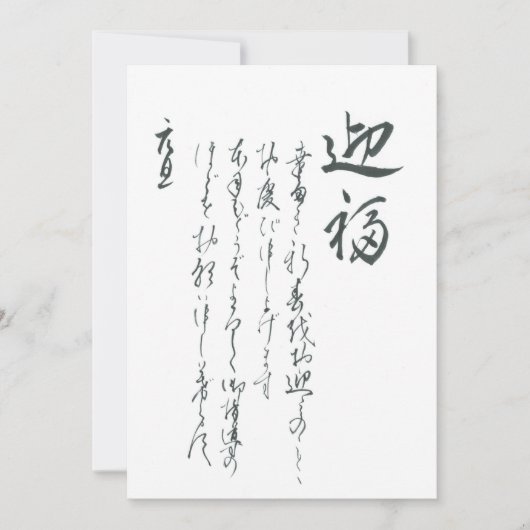 迎福
幸多き新春を御迎えのことと
御慶び申し上げます
本年もどうぞよろしく御指導の
ほどを御願い申し上げます
元旦